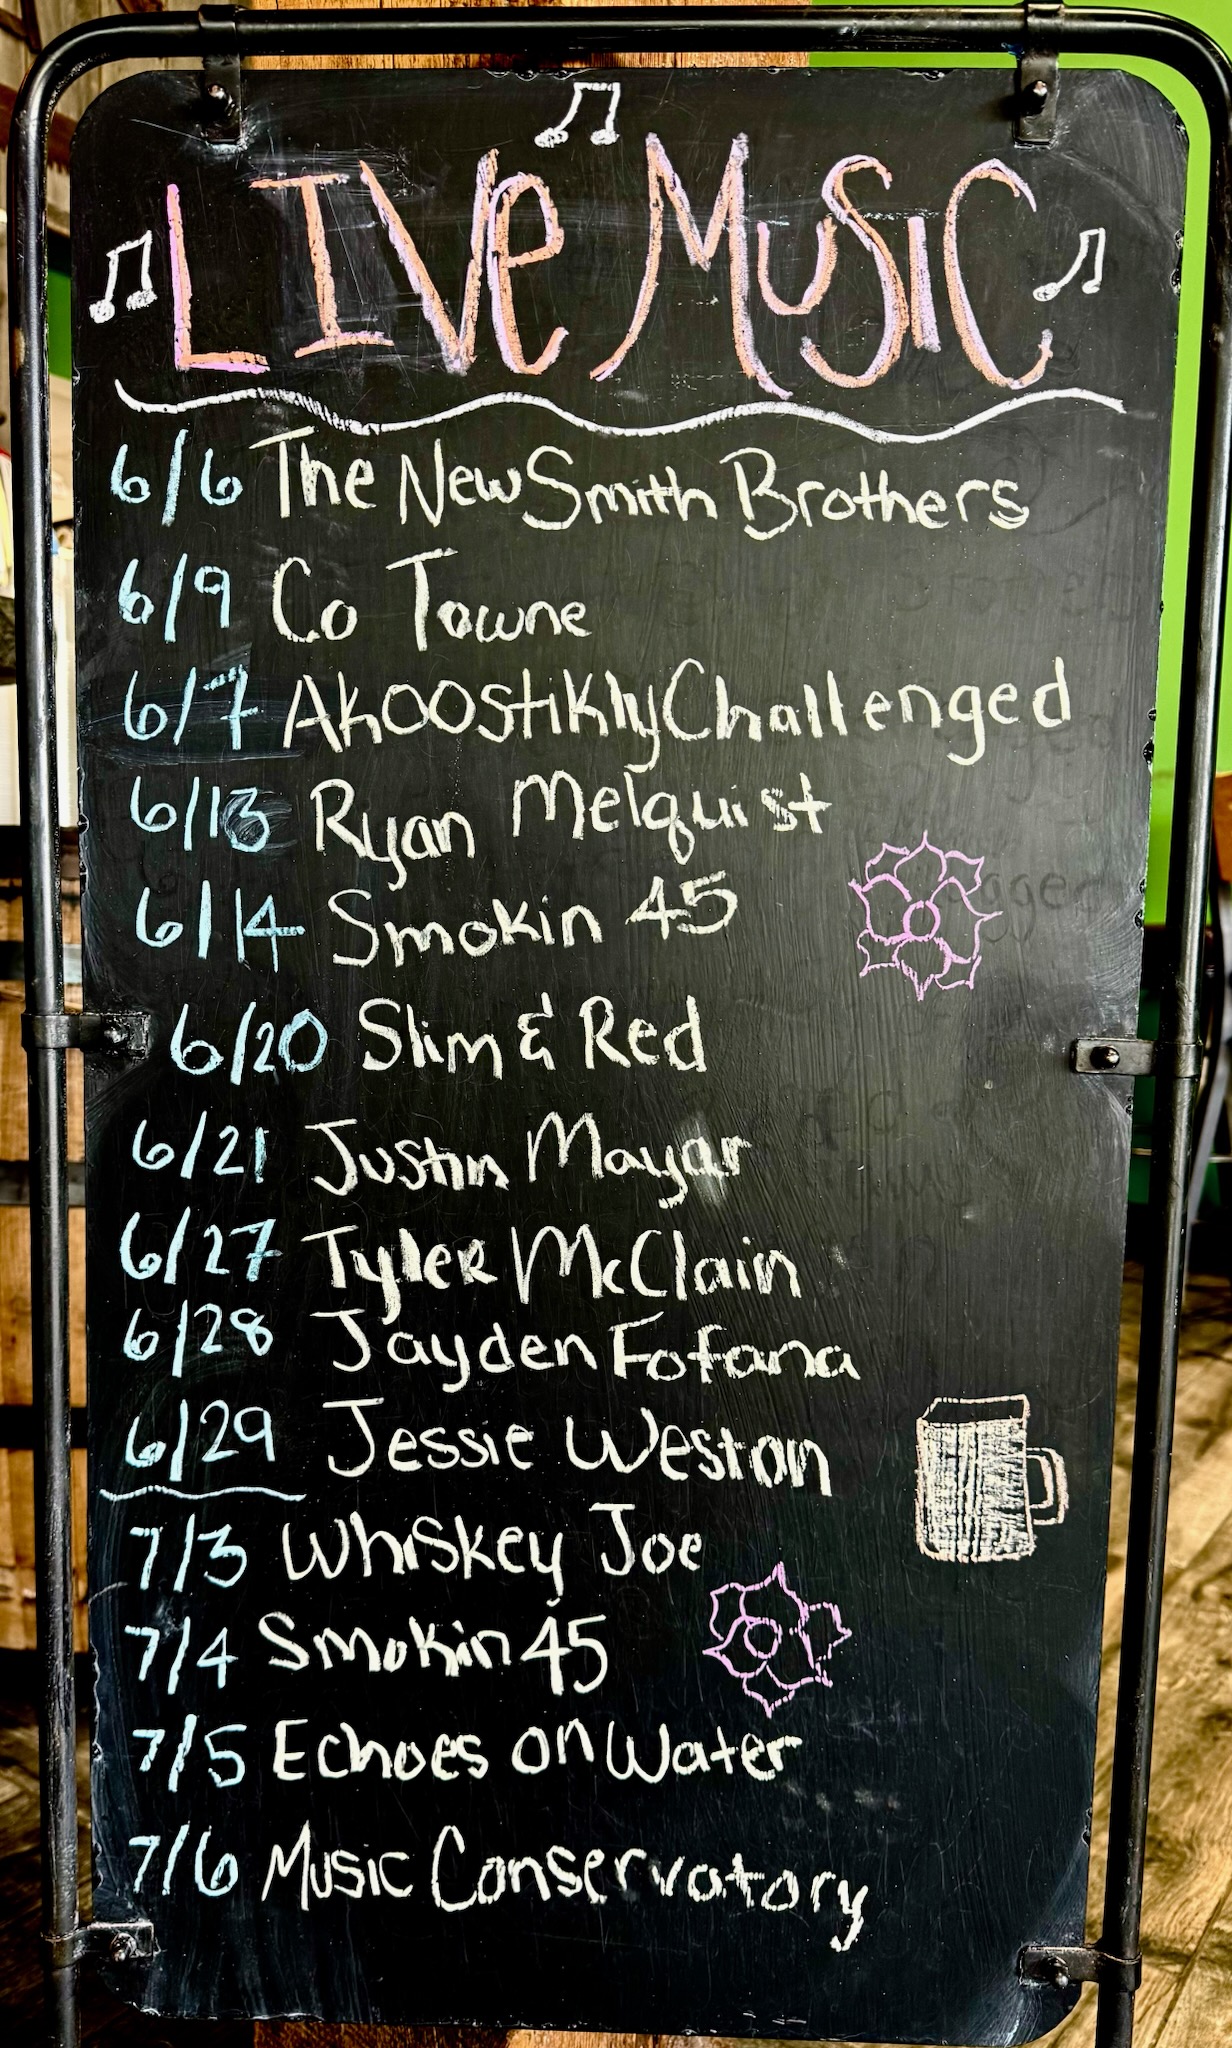 LIVe MUSIC
6/6 The New Smith Brothers
6/9 Co Towne
6/7 AkOOStiKly Challenged
6/13 Ryan Melquist
6/14 Smokin 45
6/20 Slim & Red
6/21 Justin Mayar
6/27 TyleR McClain
6/28 Jayden Fofana
6/29 Jessie Weston
7/3 Whiskey Joe
7/4 Smokin 45
7/5 Echoes on Water
7/6 Music Conservatory